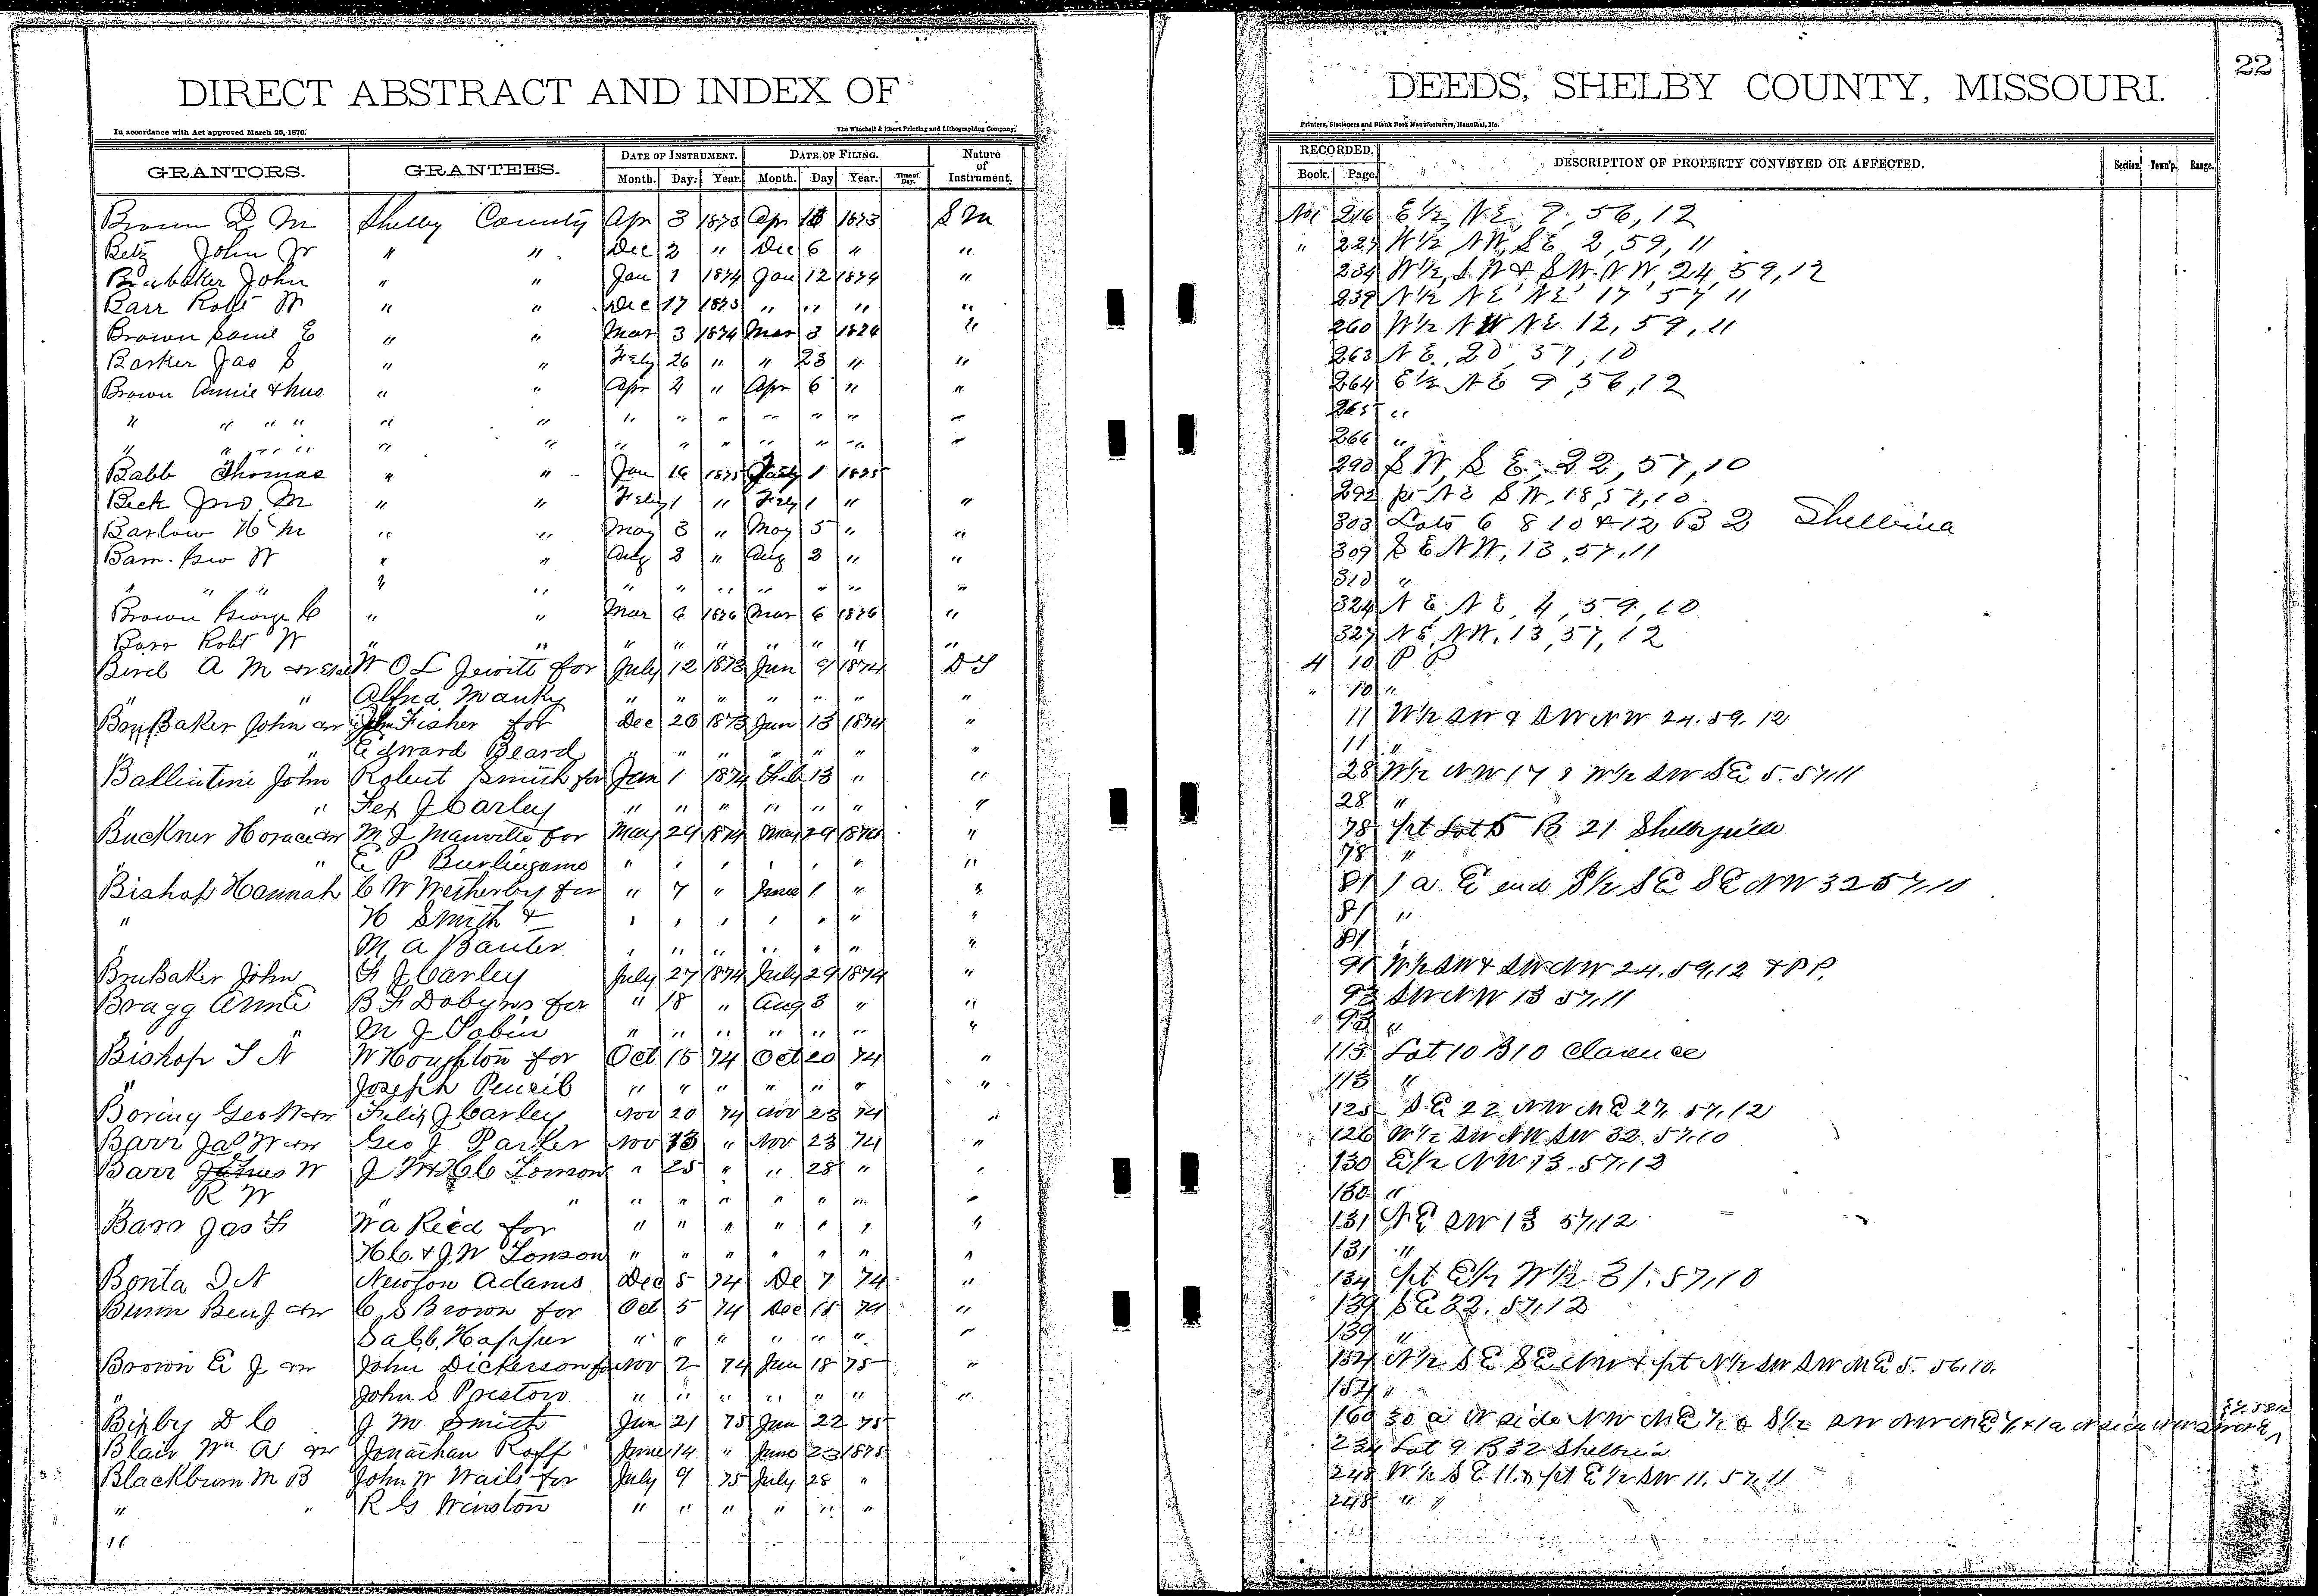 22
DIRECT ABSTRACT AND INDEX OF DEEDS, SHELBY COUNTY, MISSOURI.
In accordance with Act approved March 25, 1870. The Winchell & Ebert Printing and Lithographing Company, Printers, Stationers and Blank Book Manufacturers, Hannibal, Mo.
GRANTORS. GRANTEES. DATE OF INSTRUMENT. DATE OF FILING. Nature of Instrument. RECORDED. DESCRIPTION OF PROPERTY CONVEYED OR AFFECTED. Section. Town'p. Range.
Month. Day. Year. Month. Day. Year. Time of Day. Book. Page.
Brown D M Shelby County Apr 3 1873 Apr 1873 S M No1 216 E½ NE, 9, 56, 12
Betz John Jr " " Dec 2 " Dec 6 " " " 227 W½ NW, SE 2, 59, 11
Brubaker John " " Jan 1 1874 Jan 12 1874 " 234 W½, SW & SW, NW, 24, 59, 12
Barr Robt W " " Dec 17 1873 " " " " 239 N½ NE NE 17 57 11
Brown Saml E " " Mar 3 1874 Mar 3 1874 " 260 W½ NW NE 12, 59, 11
Barker Jas S " " Feby 26 " " 23 " " 263 NE, 20, 57, 10
Brown Annie & hus " " Apr 2 " Apr 6 " " 264 E½ NE 9, 56, 12
" " " " " " " " " " " " " 265 "
" " " " " " " " " " " " " 266 "
Babb Thomas " " Jan 16 1875 1 1875 290 SW, SE, 22, 57, 10
Beck Jno M " " Feby 1 " Feby 1 " " 292 pt NE SW, 18, 57, 10
Barlow H M " " May 3 " May 5 " " 303 Lots 6 8 10 & 12 B 2 Shelbina
Barr Geo W " " Aug 2 " Aug 2 " " 309 SE NW, 13, 57, 11
" " " " " " " " " " " " 310 "
Brown George C " " Mar 6 1876 Mar 6 1876 " 324 NE, NE, 4, 59, 10
Barr Robt W " " " " " " " " " 327 NE, NW, 13, 57, 12
Bird A M W O L Jewitt for July 12 1873 Jan 9 1874 D T 4 10 P P
" " Manky " " " " " " " " 10 "
BruBaker John &w John Fisher for Dec 26 1873 Jan 13 1874 " 11 W½ SW & SW NW 24. 59. 12
" Edward Beard " " " " " " " 11 "
Ballintine John Robert Smith for Jan 1 1874 Feb 13 " " 28 W½ NW 17 & W½ SW SE 5. 57. 11
" " J Carley " " " " " " " 28 "
Buckner Horace &w M J Manville for May 29 1874 May 29 1874 " 78 pt Lot 5 B 21 Shelbyville
" E P Burlingame " " " " " " " 78 "
Bishop Hannah C W Wetherby for " 7 " June 1 " " 81 1 a E end S½ SE SE NW 32 57. 10
" H Smith & " " " " " " " 81 "
M A Banter " " " " " " " 81 "
BruBaker John F J Carley July 27 1874 July 29 1874 " 91 W½ SW & SW NW 24. 59. 12 & P P.
Bragg Ann E B F Dobyns for " 18 " Aug 3 " " 93 SW NW 13 57. 11
M J Tobin " " " " " " " 93 "
Bishop T N W Houghton for Oct 15 74 Oct 20 74 " 113 Lot 10 B 10 Clarence
" Joseph Pencil " " " " " " " 113 "
Boring Geo W &w Felix J Carley Nov 20 74 Nov 23 74 " 125 SE 22 NW NE 27. 57. 12
Barr Jas W &w Geo J Parker Nov 13 " Nov 23 74 " 126 W½ SW NW SW 32. 57. 10
Barr James W J W & H C Lonson " 25 " " 28 " " 130 E½ NW 13. 57. 12
" R W " " " " " " " " " 130 "
Barr Jas F W A Reed for " " " " " " " 131 NE SW 13 57. 12
H C. & J W Lonson " " " " " " " 131 "
Bonta D N Newton Adams Dec 5 74 De 7 74 " 134 pt E½ W½ 31. 57. 10
Bunn Benj &w C S Brown for Oct 5 74 Dec 18 74 " 139 SE 32. 57. 12
Happer " " " " " " " 139 "
Brown E J &w John Dickerson for Nov 2 74 Jan 18 75 " 154 N½ SE SE NW & pt N½ SW SW NE 5. 56. 10.
" John S Preston " " " " " " " 154 "
Bixby D C J M Smith Jan 21 75 Jan 22 75 160 30 a N side NW NE
Blair Wm A &w Jonathan Roff June 14 " June 23 1875 234 Lot 9 B 32 Shelbina
Blackburn M B John W Wails for July 9 75 July 28 " 248 W½ SE 11. & pt E½ SW 11. 57. 11
" " R G Winston " " " " " " 248 " "
"